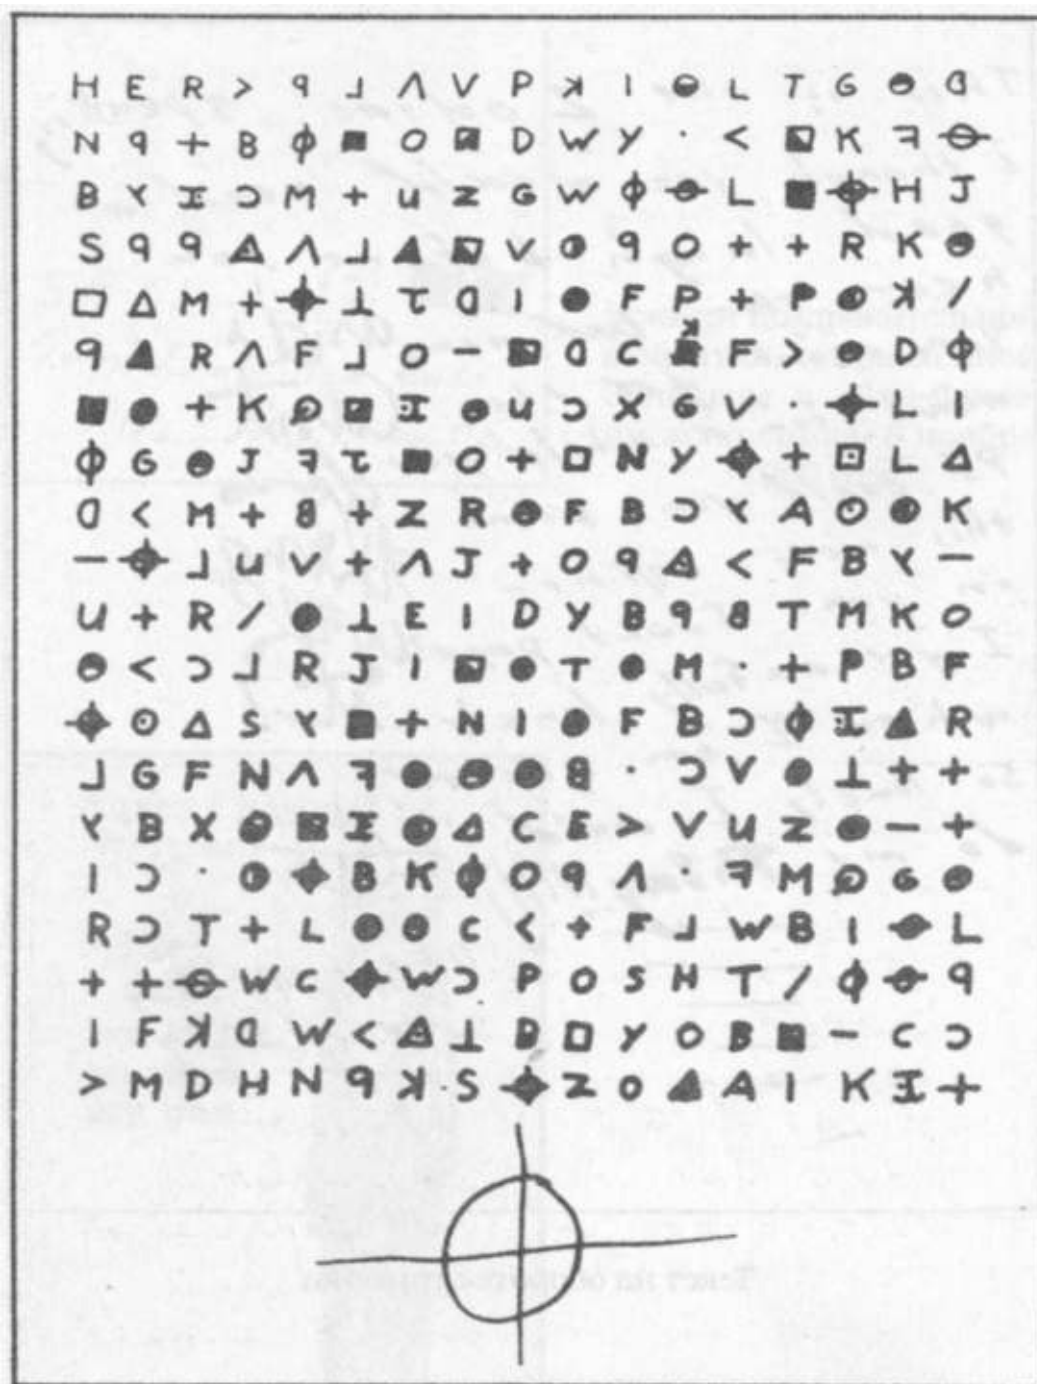 H E R > ꟼ ⅃ Λ V P ꓘ I ◒ L T G ◒ ᗡ
N ꟼ + B ⌽ ■ O ◪ D W Y · < ◪ K ꟻ ⊖
B Y I Ɔ M + U Z G W ⌽ ⊖ L ■ ⌖ H J
S ꟼ ꟼ △ Λ ⅃ ▲ ◪ V ◑ ꟼ O + + R K ◒
□ △ M + ⌖ ⊥ τ ᗡ I ● F P + P ◉ ꓘ /
ꟼ ▲ R Λ F ⅃ O - ◪ ᗡ C ꓘ F > ◒ D ⌽
■ ● + K ⊙ ◪ I ◒ U Ɔ X G V · ⌖ L I
⌽ G ◒ J ꟻ τ ■ O + □ N Y ⌖ + ⊡ L △
ᗡ < M + 8 + Z R ◒ F B Ɔ Y A ⊙ ● K
- ⌖ ⅃ U V + Λ J + O ꟼ △ < F B Y -
U + R / ● ⊥ E I D Y B ꟼ 8 T M K O
◒ < Ɔ ⅃ R J I ◪ ● T ◒ M · + P B F
⌖ ⊙ △ S Y ■ + N I ● F B Ɔ ⌽ I ▲ R
⅃ G F N Λ ꟻ ● ◒ ◒ 8 · Ɔ V ● ⊥ + +
Y B X ◒ ◪ I ◒ △ C E > V U Z ● - +
I Ɔ · ◑ ⌖ B K ⌽ O ꟼ Λ · ꟻ M ⊙ G ◒
R Ɔ T + L ● ◒ C < + F ⅃ W B I ⊖ L
+ + ⊖ W C ⌖ W Ɔ P O S H T / ⌽ ⊖ ꟼ
I F ꓘ ᗡ W < △ ⊥ B □ Y O B ■ - C Ɔ
> M D H N ꟼ ꓘ · S ⌖ Z O ▲ A I K I +